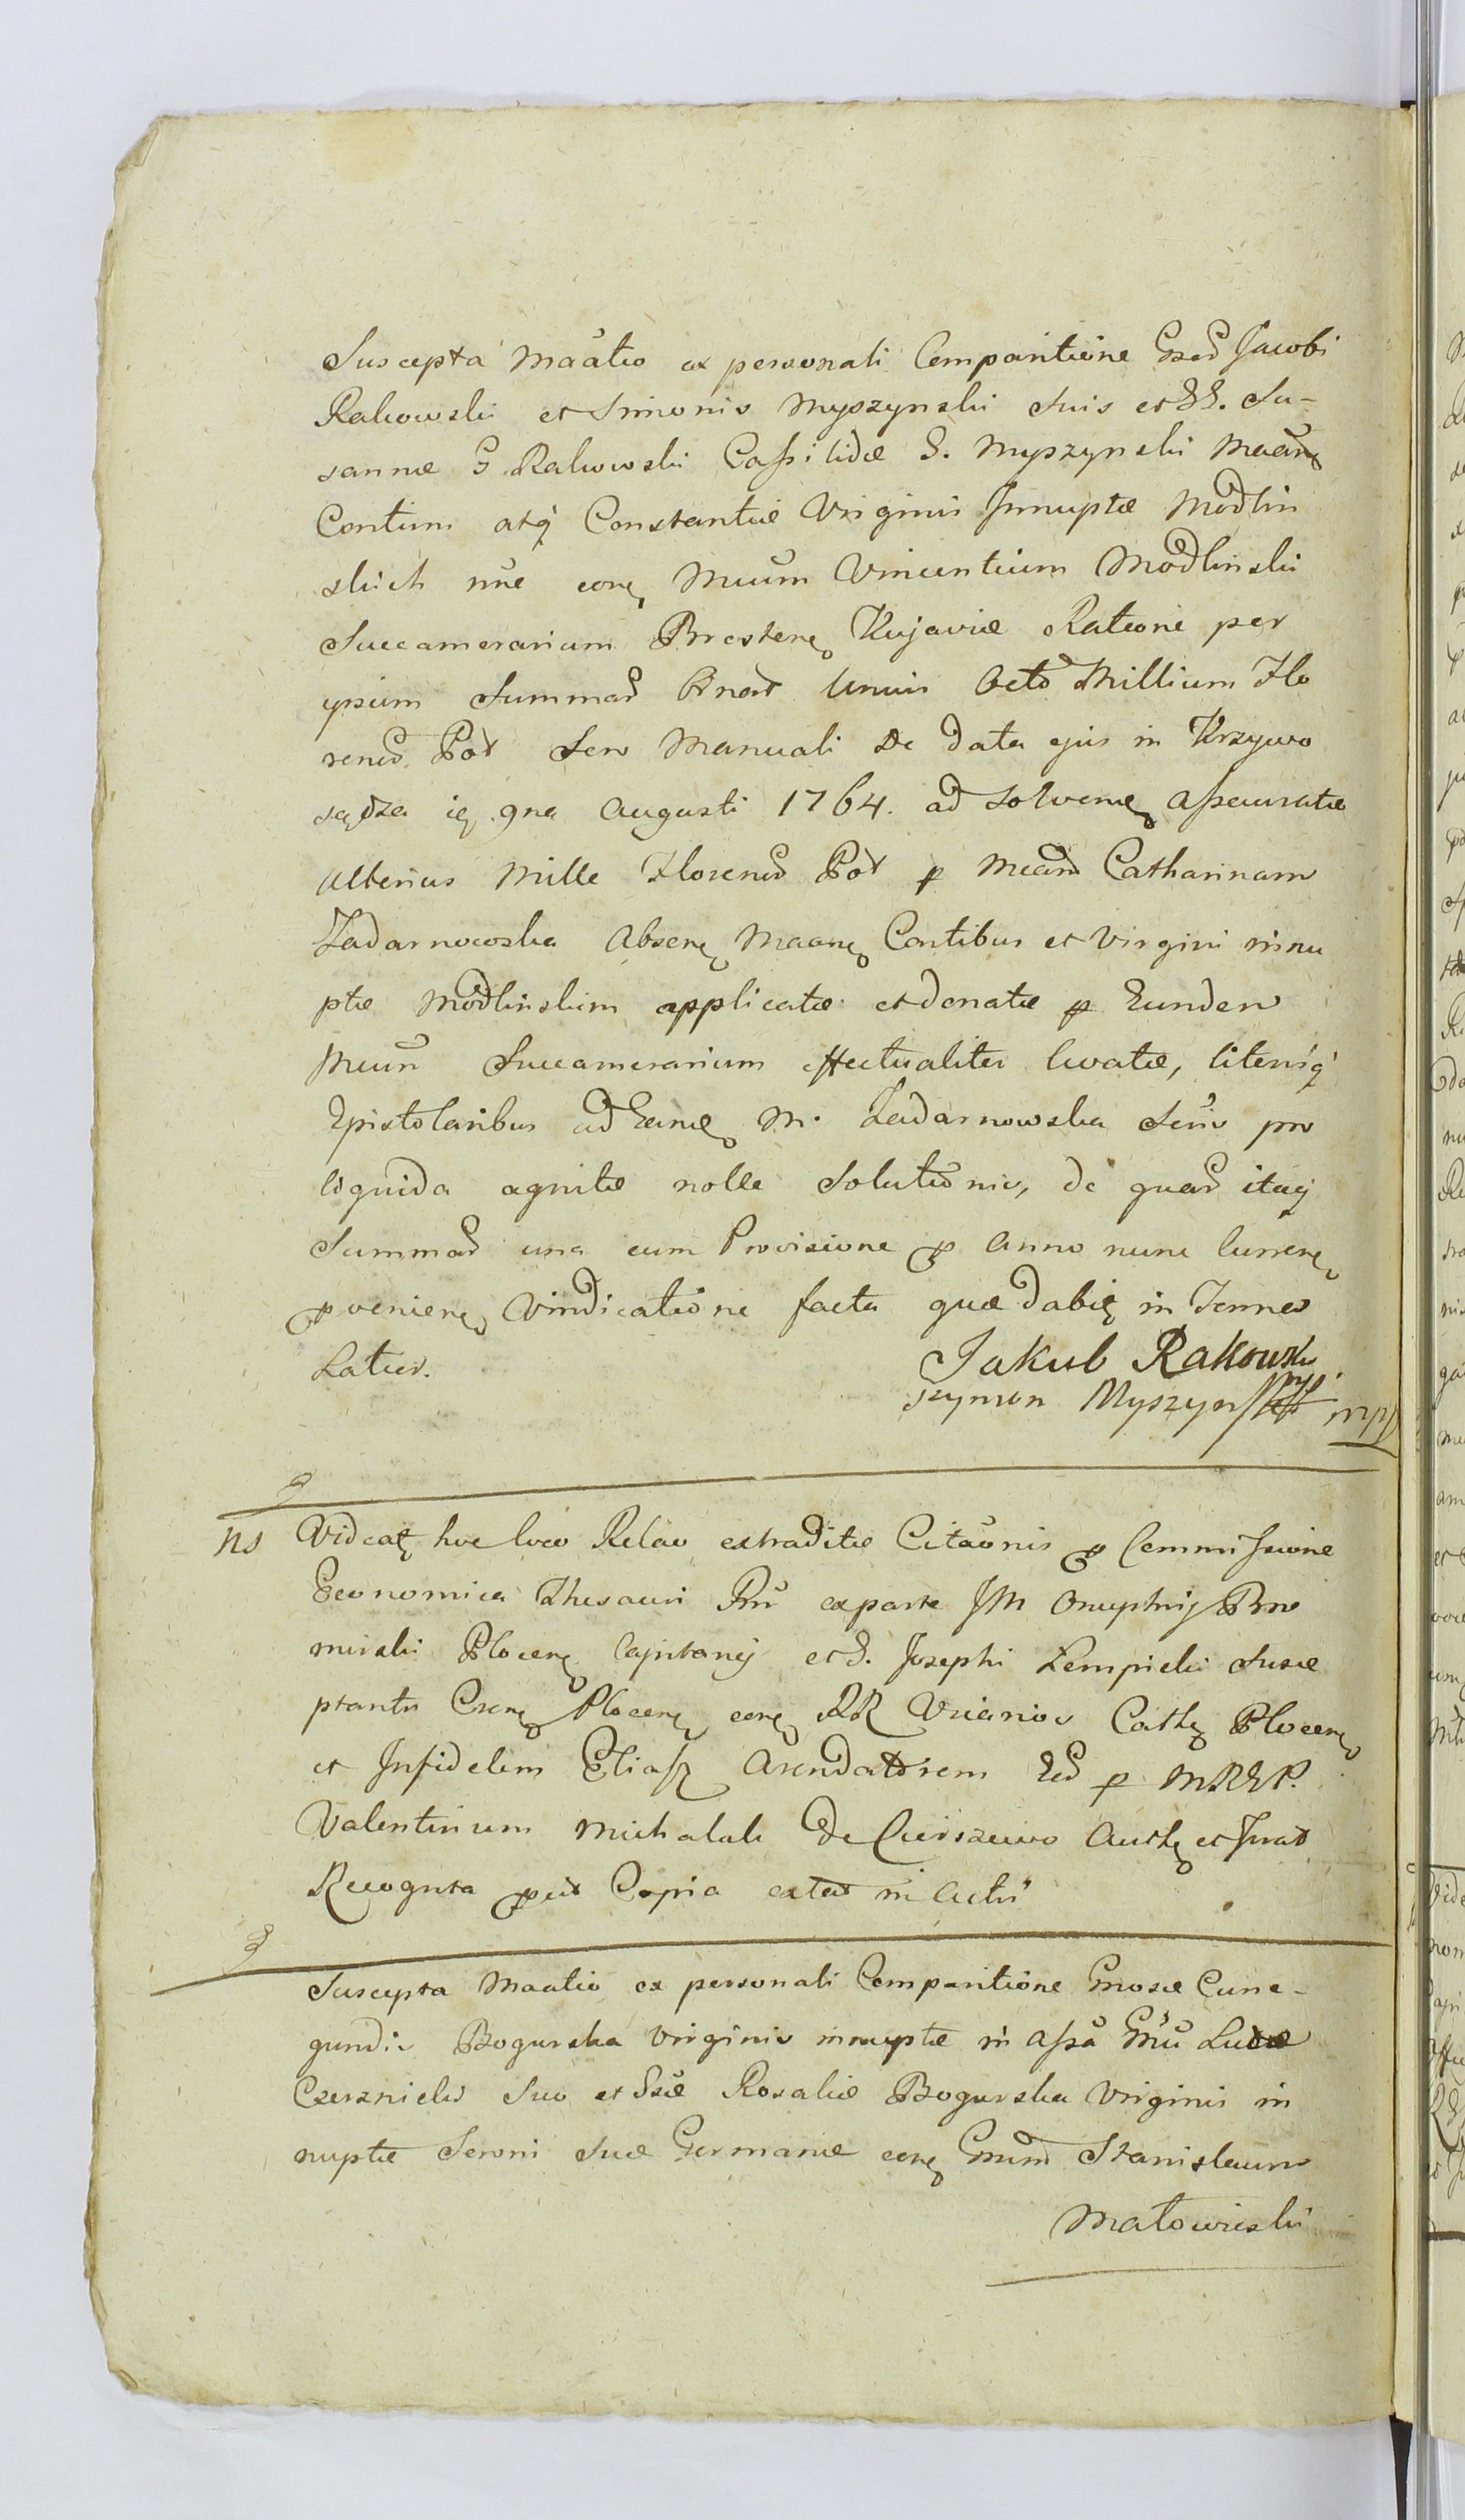 Suscepta Maatio ex personali Comparitione Gsor Jacobi
Rakowski et Simonis Myszynski Suis et GG. Su-
sannæ G Rakowski Cassildæ G. Myszynski Maarum
Contium atq Constantiæ Virginis Innuptæ Modlin
skich nne corą Mcum Vincentium Modlinski
Succamerarium Brestenę Kujaviæ Ratione per
ipsum Summar Unius Octo Millium Flo
renor Pol Seu Manuali De Data ejus in Krzywo
sądza 9na Augusti 1764. ad solvenę assecuratæ
Ulterius Mille Florenor Pol p Mcam Catharinam
Zadarnowska Absenę Maarę Contibus et Virgini innu
ptæ Modlinskim applicatæ et donatæ p Eundem
Mcum Succamerarium effectualiter levatæ, literisq
Epistolaribus ad Eanę M. Zadarnowska Scris pro
liquida agnitæ nolle Solutionis, de quar itaq
Summar una cum Provisione p Anno nunc Currenę
pvenienę Vindicatione facta quæ dabię in Termes
Latior.
Jakub Rakowski
Szymon Myszynski mp
ns Videatę hoc loco Relao extraditæ Citaonis p Commissione
Economica Thesauri Rni ex parte JM Onuphrij Bro
mirski Plocenę Capitanej et G. Josephi Zempicki Susce
ptantis Csenę Plocenę corą RR Vicarios Cathę Plocenę
et Infidelem Eliasz Arendatorem Ecd p MREP.
Valentinum Michalak De Cierszewo Authę et Jurat
Recognita put Copia extat in Actis
Suscepta Maatio ex personali Comparitione Gnosæ Cune-
gundis Bogurska Virginis innuptæ in Assa Gnu Lucæ
Czerznickis Suo et Gsæ Rosaliæ Bogurska Virginis in
nuptæ Sorori Suæ Germanæ corą Gnum Stanislaum
Matowieski